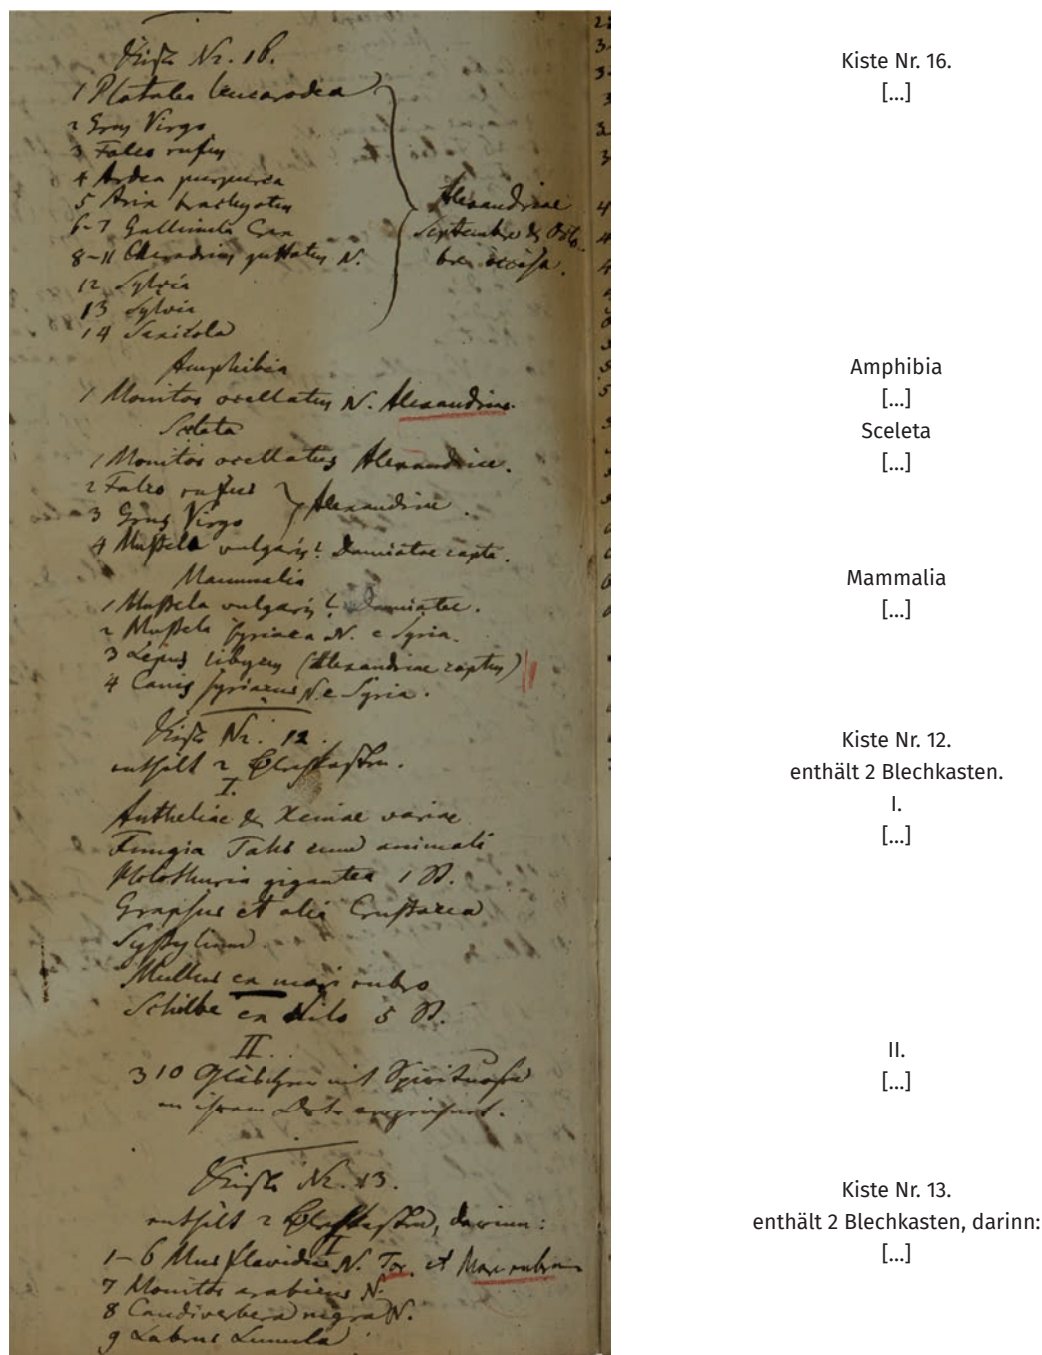 Kiste Nr. 16.
1 Platalea leucorodia
2 Grus Virgo
3 Falco rufus
4 Ardea purpurea
5 brachyotus
6-7 Gallinula Crex
8-11 Charadrius guttatus N.
12 Sylvia
13 Sylvia
14 Saxicola
Alexandriae
Septembre & Octo
bre occisa.
Amphibia
1 Monitor ocellatus N. Alexandriae.
Sceleta
1 Monitor ocellatus Alexandriae.
2 Falco rufus
3 Grus Virgo
Alexandriae.
4 Mustela vulgaris? Damiatae capta.
Mammalia
1 Mustela vulgaris? Damiatae.
2 Mustela syriaca N. e Syria.
3 Lepus libycus (Alexandriae captus)
4 Canis syriacus N. e Syria.
Kiste Nr. 12.
enthält 2 Blechkasten.
I.
Antheliae & Xeniae variae
Fungia cum animali
Holothuria gigantea 1 St.
Grapsus et alia Crustacea
Mullus ex mari rubro
Schilbe ex Nilo 5 St.
II.
310 Gläschen mit Spirituosa
an ihrem Orte
Kiste Nr. 13.
enthält 2 Blechkasten, darinn:
I
1-6 Mus flavidus N. Tor. et Mare rubrum
7 Monitor arabicus N.
8 Caudiverbera nigra N.
9 Labrus Lunula
Kiste Nr. 16.
[...]
Amphibia
[...]
Sceleta
[...]
Mammalia
[...]
Kiste Nr. 12.
enthält 2 Blechkasten.
I.
[...]
II.
[...]
Kiste Nr. 13.
enthält 2 Blechkasten, darinn:
[...]